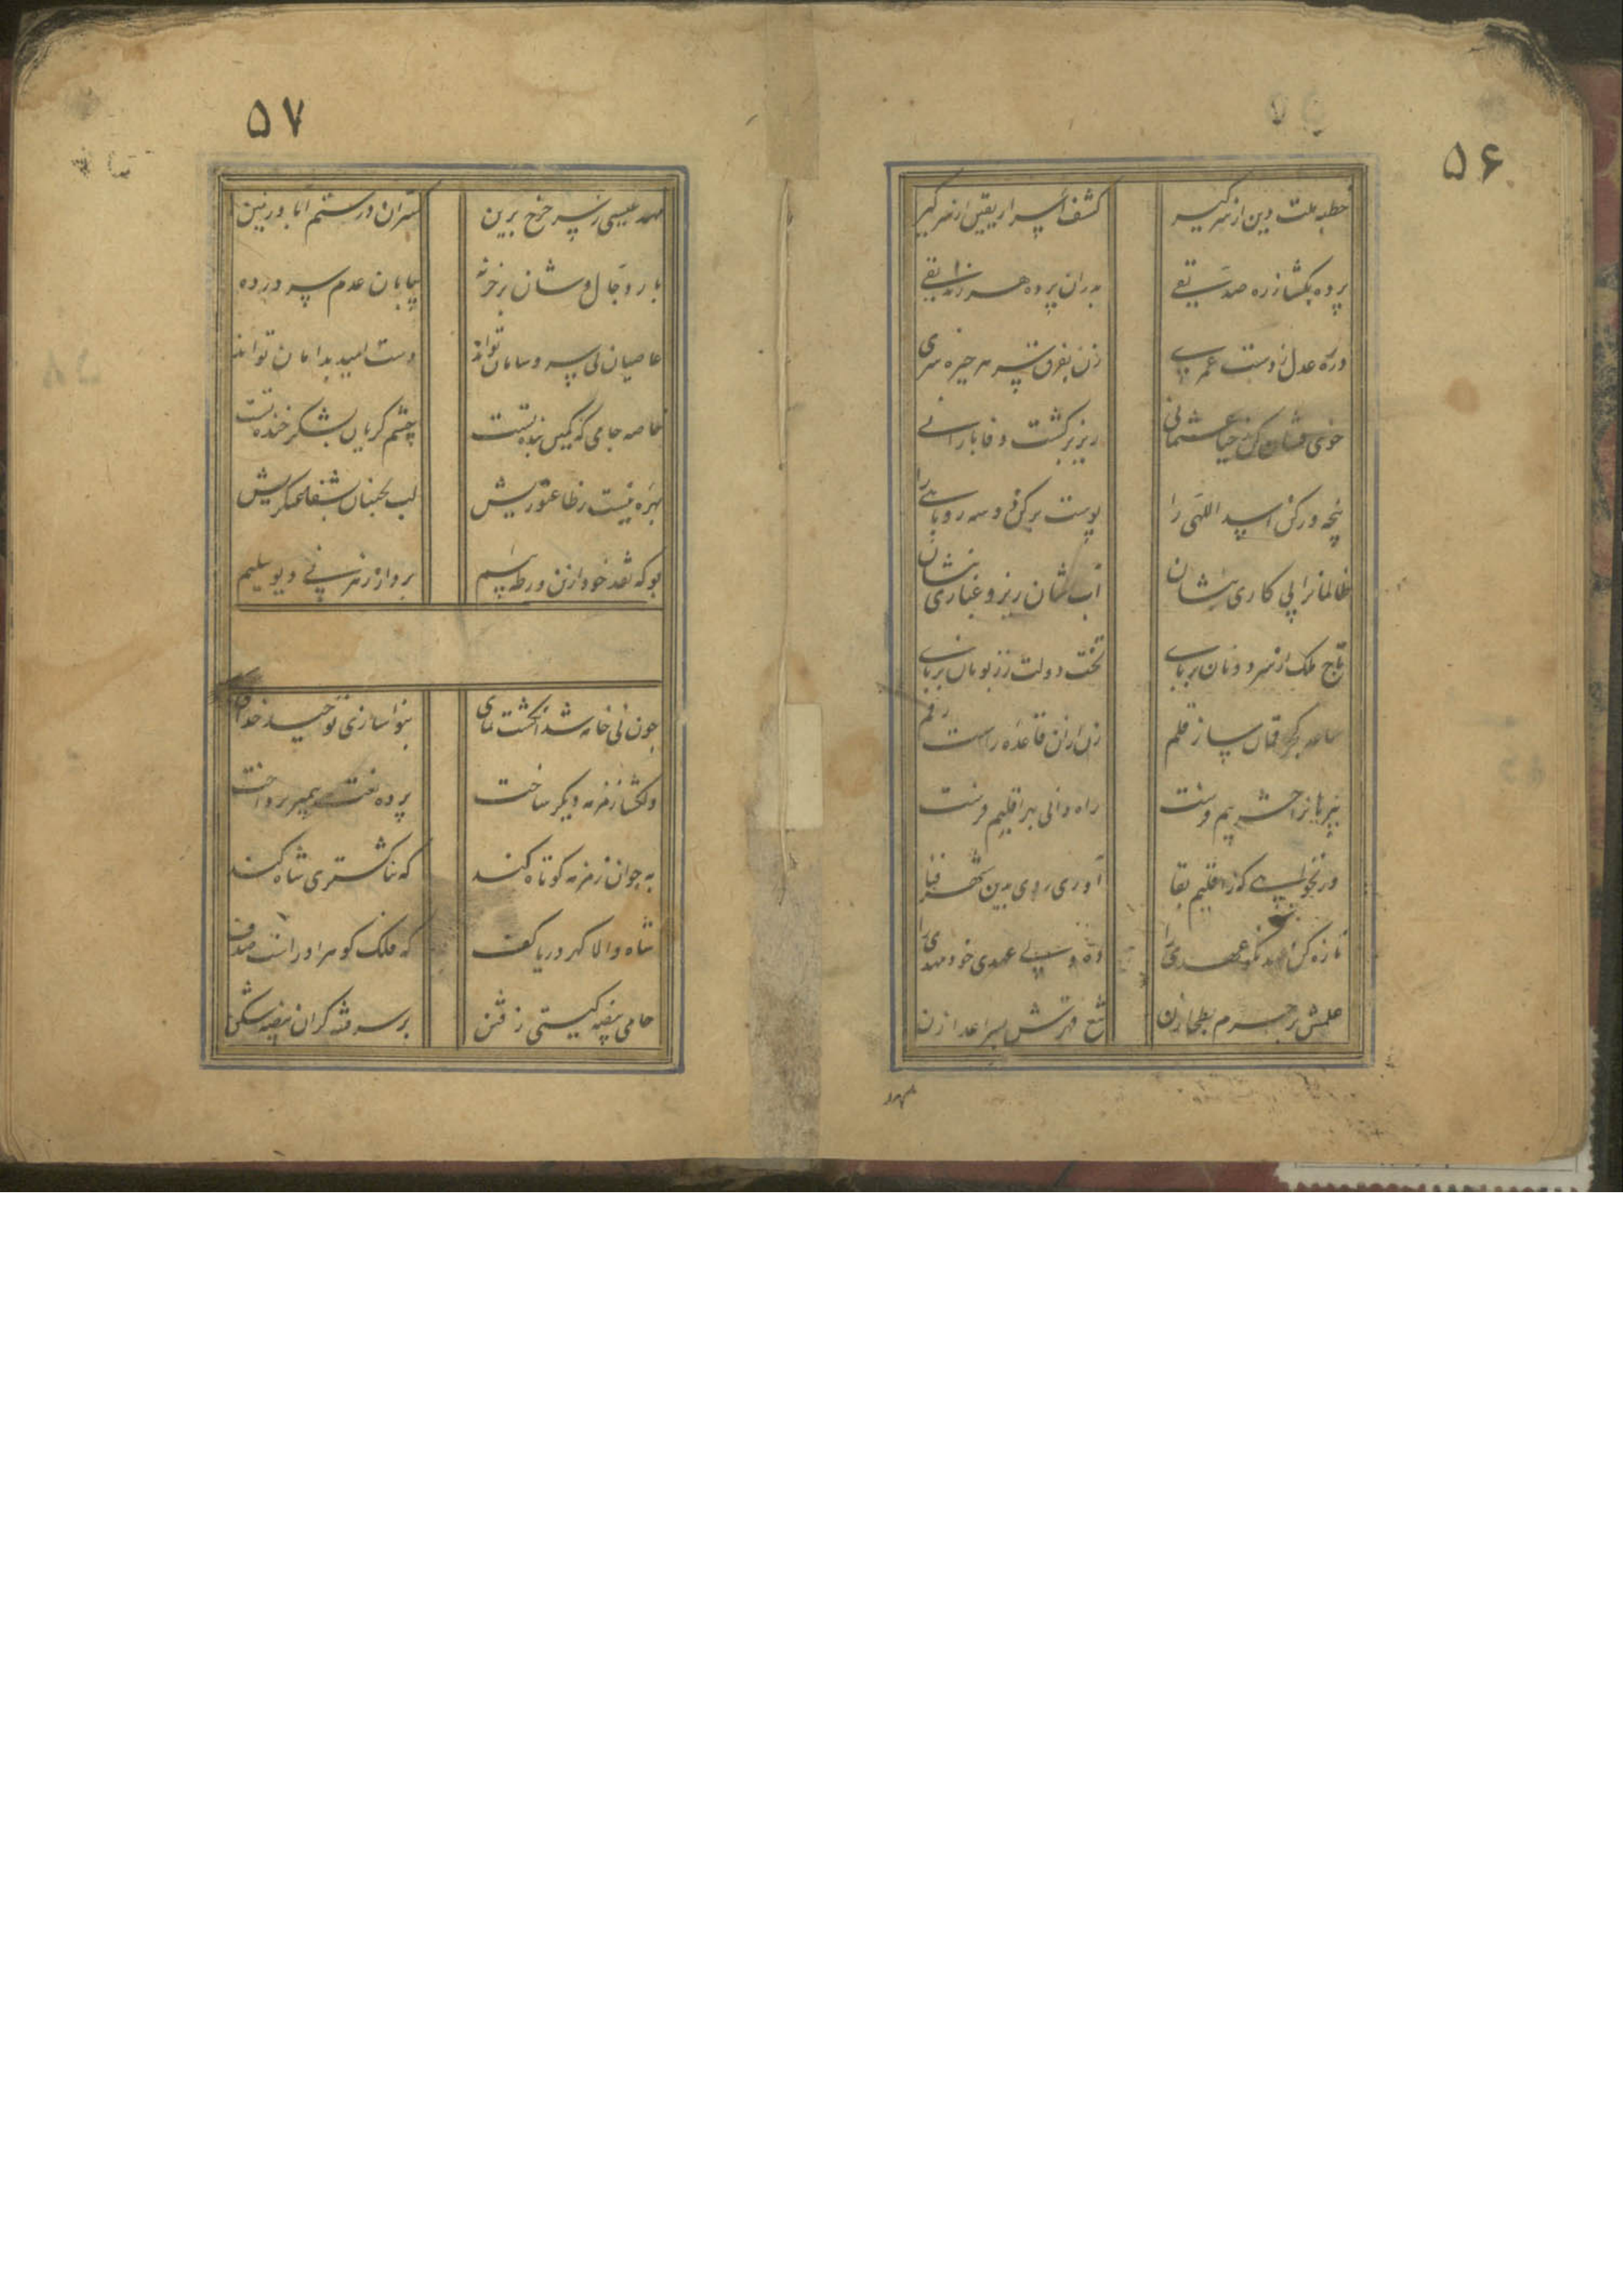 ۵۶
خطبه ملت دین از سر گیر کشف اسرار یقین از سر گیر
پرده بکشا ز ره صدیقی بدران پرده هر زندیقی
دره عدل ز دست عمری زن بفرق سر هر خیره سری
خوی فشان کن ز حیا عثمانی ریز بر کشت وفا بارانی
پنجه در کن اسد اللهی را پوست برکن دو سه روباهی را
ظالمانرا پی کاری بنشان آب شان ریز و غباری بنشان
تاج ملک از سر دونان بربای تخت دولت ز زبونان بربای
قلم زن ازان قاعده راست رقم
نیز یا نرا حشر بیم فرست راه دانی بهر اقلیم فرست
ور نخواهی که ز اقلیم بقا آوری روی بدین شهر فنا
تازه کن عهد نکو عهدی را ده ولی عهدی خود مهدی را
علمش بر حرم بطحا زن تیغ قهرش بسر اعدا زن
مهد
۵۷
مهد عیسی ز سر چرخ برین کستران در ستم آباد زمین
بار دجال وشان بر خر نه به بیابان عدم سر در ده
عاصیان بی سر و سامان تواند دست امید بدامان تواند
خاصه جامی که کمین بنده تست چشم گریان بشکر خنده تست
بهره نیست ز طاعتوریش لب بجنبان بشفاعتگریش
بو که نقد خود ازین ورطه بیم برد از رهزنی دیو سلیم
چون نی خامه شد انگشت نمای بنوا سازی توحید خدای
دلکشا زمزمه دیگر ساخت پرده نعت پیمبر پرداخت
به چو آن زمزمه کوتاه کند که ثنا گستری شاه کند
شاه والا گهر دریا کف که فلک گوهر او راست صدف
حامی بیضه گیتی ز فتن بر سر فتنه گران بیضه شکن